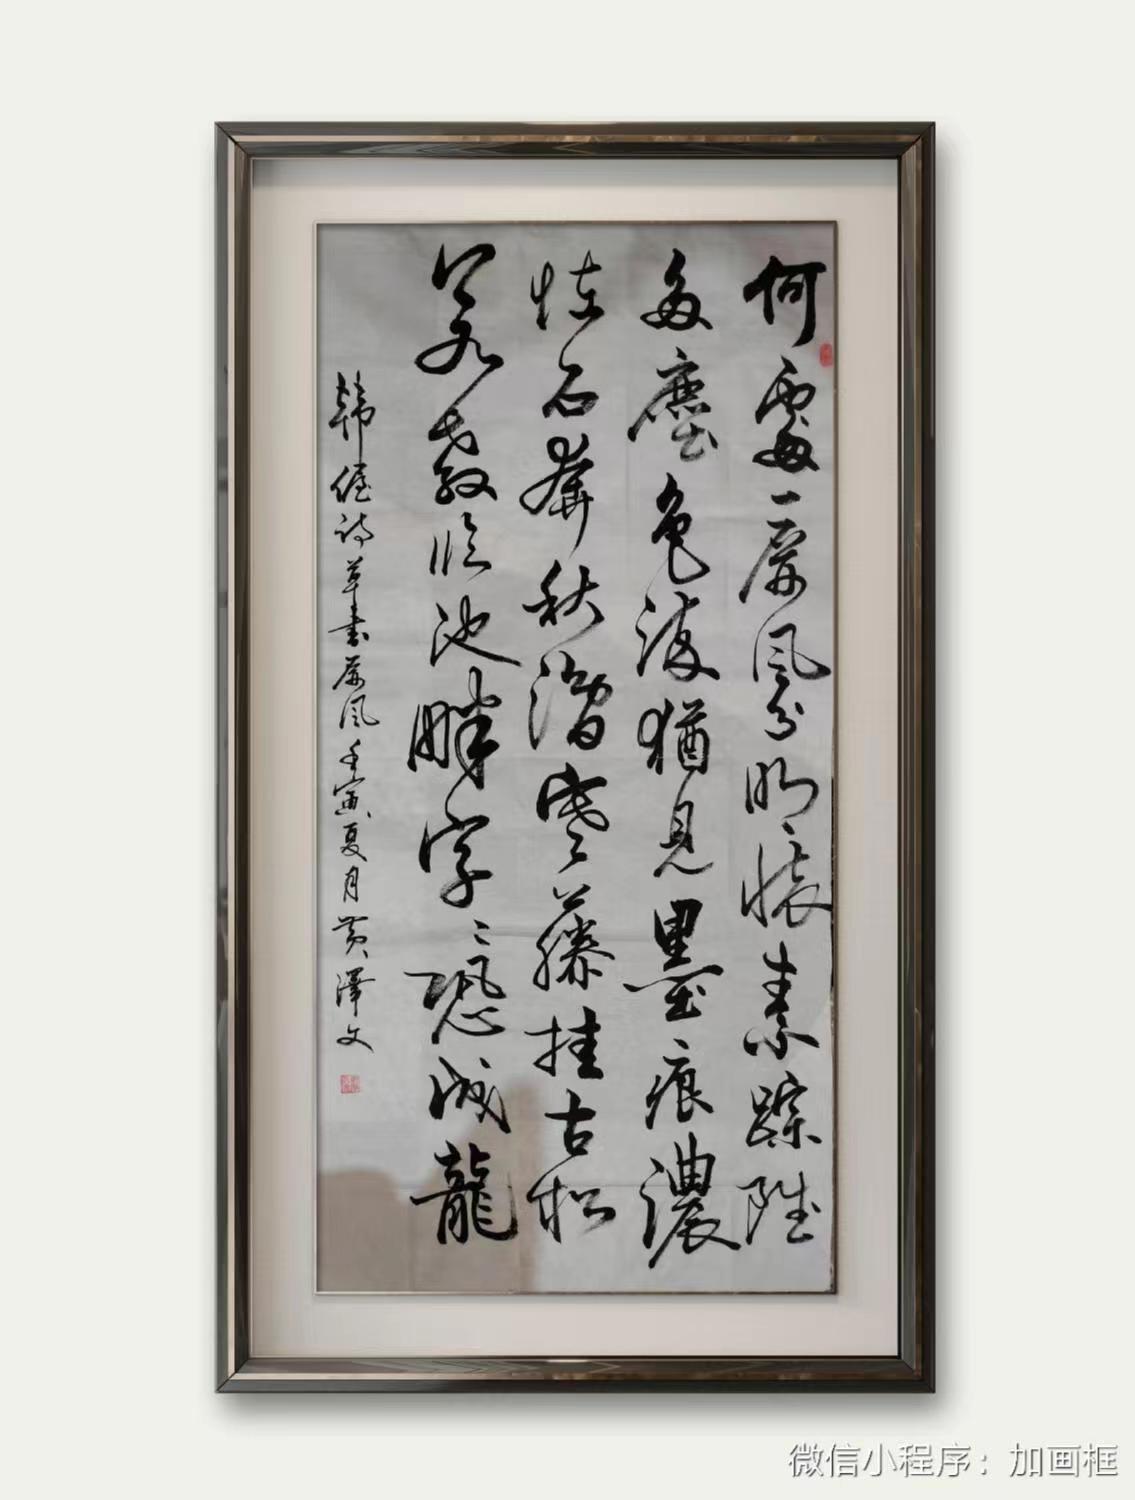 何處一屏風分明懷素踪雖
多塵色染猶見墨痕濃
怪石奔秋澗寒藤挂古松
若教臨池畔字〻恐成龍
韓偓詩草書屏風壬寅夏月黃澤文
微信小程序：加画框